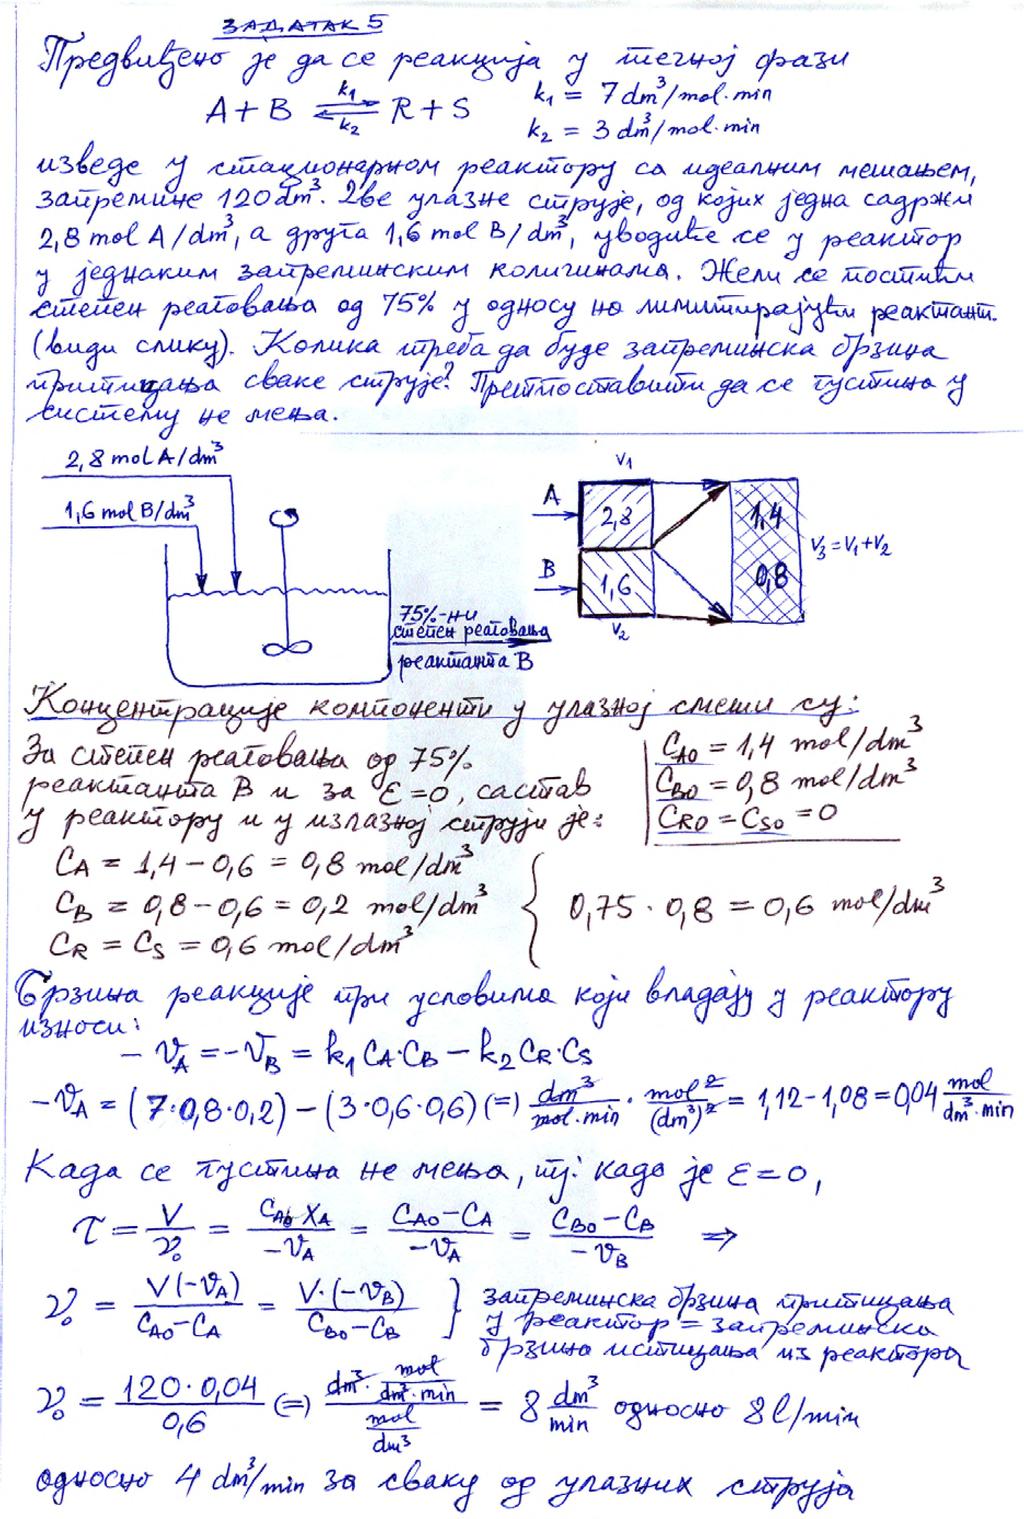 ЗАДАТАК 5
Предвиђено је да се реакција у течној фази
A + B ⇌ R + S
k₁
k₂
k₁ = 7 dm³/mol·min
k₂ = 3 dm³/mol·min
изведе у стационарном реактору са идеалним мешањем,
запремине 120 dm³. Две улазне струје, од којих једна садржи
2,8 mol A/dm³, а друга 1,6 mol B/dm³, уводиће се у реактор
у једнаким запреминским количинама. Жели се постићи
степен реаговања од 75% у односу на лимитирајући реактант.
(види слику). Колика треба да буде запреминска брзина
притицања сваке струје? Претпоставити да се густина у
систему не мења.
2,8 mol A/dm³
1,6 mol B/dm³
75%-ни
степен реаговања
реактанта B
V₁
A
2,8
1,4
V₃ = V₁ + V₂
B
1,6
0,8
V₂
Концентрације компоненти у улазној смеши су:
За степен реаговања од 75%
реактанта B и за ε=0, састав
у реактору и у излазној струји је:
CA0 = 1,4 mol/dm³
CB0 = 0,8 mol/dm³
CR0 = CS0 = 0
CA = 1,4 − 0,6 = 0,8 mol/dm³
CB = 0,8 − 0,6 = 0,2 mol/dm³
CR = CS = 0,6 mol/dm³
0,75 · 0,8 = 0,6 mol/dm³
Брзина реакције при условима који владају у реактору
износи:
−𝑣A = −𝑣B = k₁ CA·CB − k₂ CR·CS
−𝑣A = (7·0,8·0,2) − (3·0,6·0,6) (=) dm³/mol·min · mol²/(dm³)² = 1,12 − 1,08 = 0,04 mol/dm³·min
Када се густина не мења, тј. када је ε=0,
τ = V/𝑣₀ = CA0 XA/−𝑣A = CA0−CA/−𝑣A = CB0−CB/−𝑣B ⇒
𝑣₀ = V(−𝑣A)/CA0−CA = V·(−𝑣B)/CB0−CB
запреминска брзина притицања
у реактор = запреминска
брзина истицања из реактора
𝑣₀ = 120·0,04/0,6 (=) dm³· mol/dm³·min / mol/dm³ = 8 dm³/min односно 8 l/min
односно 4 dm³/min за сваку од улазних струја